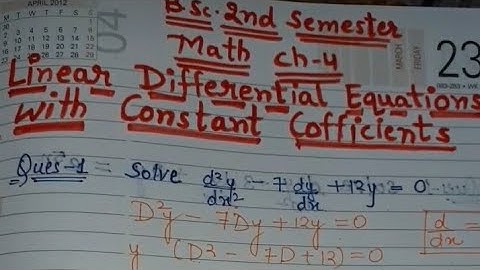 APRIL 2012
04
B.Sc. 2nd Semester
Math ch-4
MARCH
FRIDAY
23
Linear Differential Equations
with Constant Cofficients
Ques-1 = Solve d²y/dx² - 7 dy/dx + 12y = 0
D²y - 7Dy + 12y = 0
d/dx =
y (D² - 7D + 12) = 0